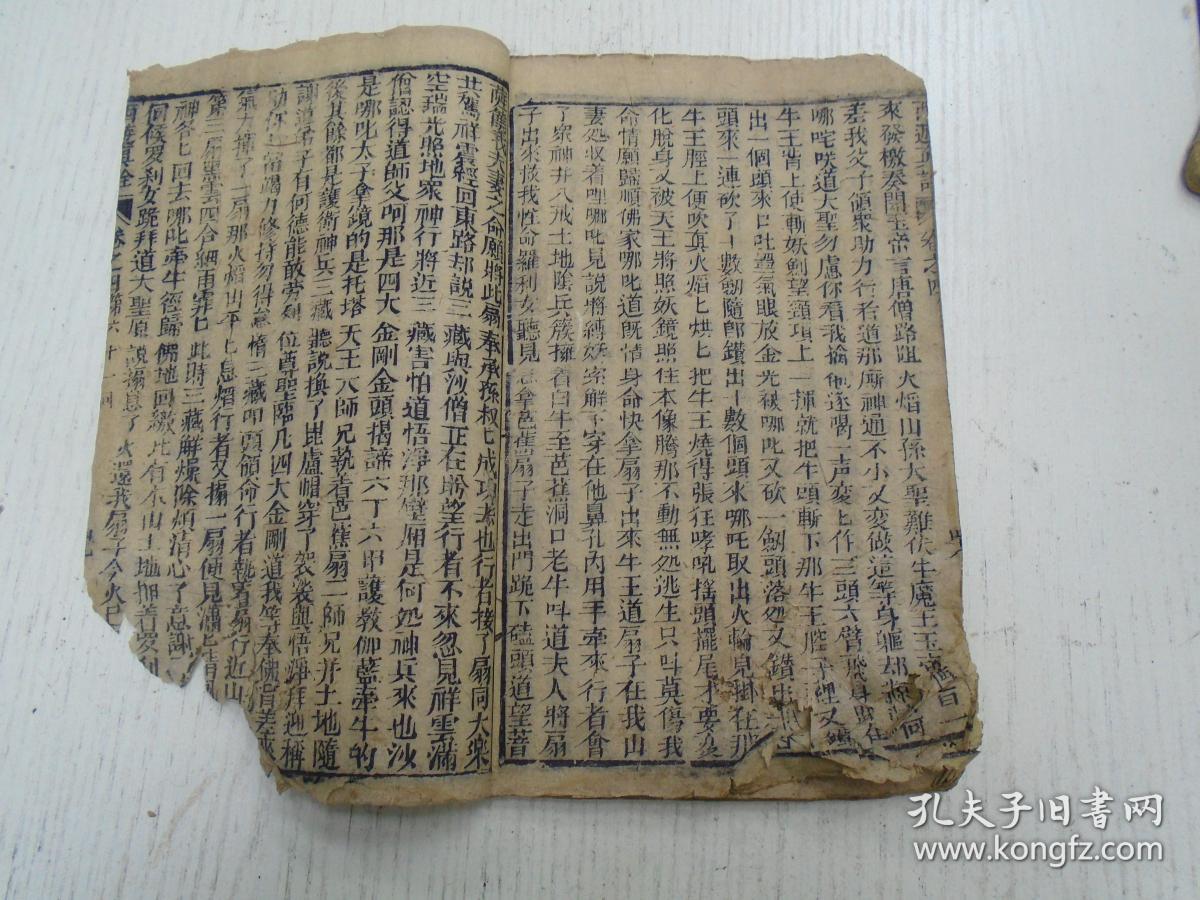 來發檄奏聞玉帝言唐僧路阻火焰山孫大聖難伏牛魔王玉帝
差我父子領衆助力行者道那厮神通不小又變做這等身軀却
哪咤咲道大聖勿慮你看我擒他遂喝一声変七作三頭六臂飛身跳在
牛王背上使斬妖劍望頸項上一揮就把牛頭斬下那牛王腔子裡又鑽
出一個頭來口吐黑氣眼放金光被哪叱又砍一劍頭落処又鑽出
頭來一連砍了十數劍隨即鑽出十數個頭來哪吒取出火輪見掛在那
牛王脛上便吹真火焰七烘七把牛王燒得張狂哮吼摇頭擺尾才要变
化脫身又被天王將照妖鏡照住本像騰那不動無処逃生只叫莫傷我
命情愿歸順佛家哪叱道既惜身命快拿扇子出來牛王道扇子在我山
妻処収着哩哪叱見說將縛妖索解下穿在他鼻孔内用手牽來行者會
了衆神并八戒土地陰兵簇擁着白牛至芭蕉洞口老牛叫道夫人將扇
子出來救我性命羅利女聽見急拿芭蕉扇子走出門跪下磕頭道望菩
薩饒我夫妻之命願將此扇奉承孫叔七成功去也行者接了扇同大衆
共駕祥雲經回東路却説三藏與沙僧正在盼望行者不來忽見祥雲滿
空瑞光照地衆神行將近三藏害怕道悟淨那壁厢是何処神兵來也沙
僧認得道師父呵那是四大金剛金頭揭諦六丁六甲護教伽藍牽牛的
是哪叱太子拿鏡的是托塔天王大師兄執着芭蕉扇二師兄并土地隨
後其餘都是護衛神兵三藏聽説換了毘盧帽穿了袈裟與悟淨拜迎稱
謝道弟子有何德能敢劳列位尊聖臨凡四大金剛道我等奉佛旨差來
助你 當竭力修持勿得怠惰三藏叩頭領命行者執着扇行近山
氣力搧了一扇那火焰山平七息焰行者又搧一扇便見瀟七
第三扇黑雲四合細雨霏七此時三藏解燥除煩清心了意謝
神各七回去哪叱牽牛徑歸佛地回繳此有本山土地押着罗利
伺侯罗刹女跪拜道大聖原説搧息了火還我扇子今火已
西遊真詮 卷之 第六十一回